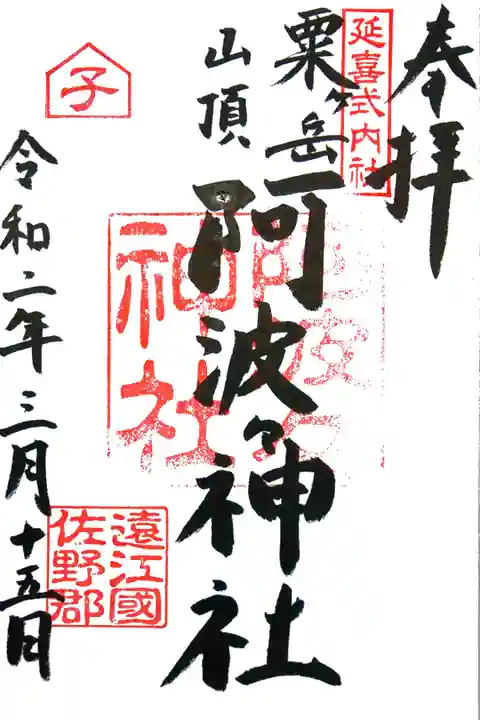 奉拝
延喜式内社
粟ヶ岳
山頂
阿波々神社
阿波々
神社
子
令和二年三月十五日
遠江國
佐野郡